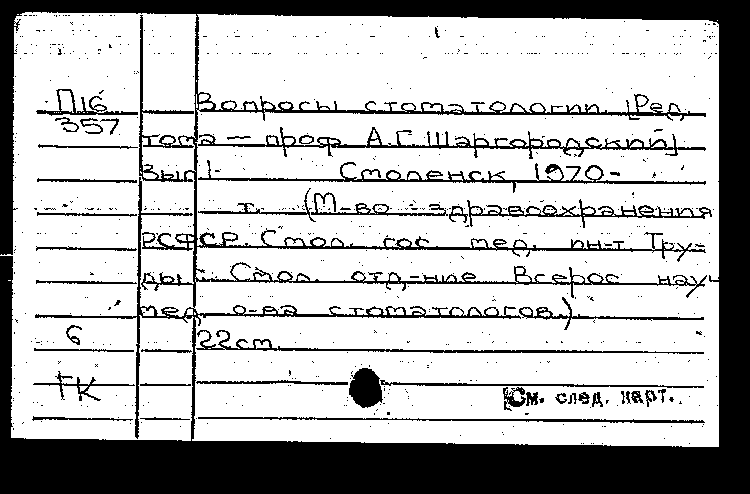 П16 Вопросы стоматологии. [Ред.
357
тома — проф. А.Г. Шаргородский].
Вып 1- Смоленск, 1970-
т. (М-во здравоохранения
РСФСР. Смол. гос. мед. ин-т. Тру-
ды. Смол. отд-ние Всерос науч
мед. о-ва стоматологов.).
6 22 см.
ГК [См. след. карт.